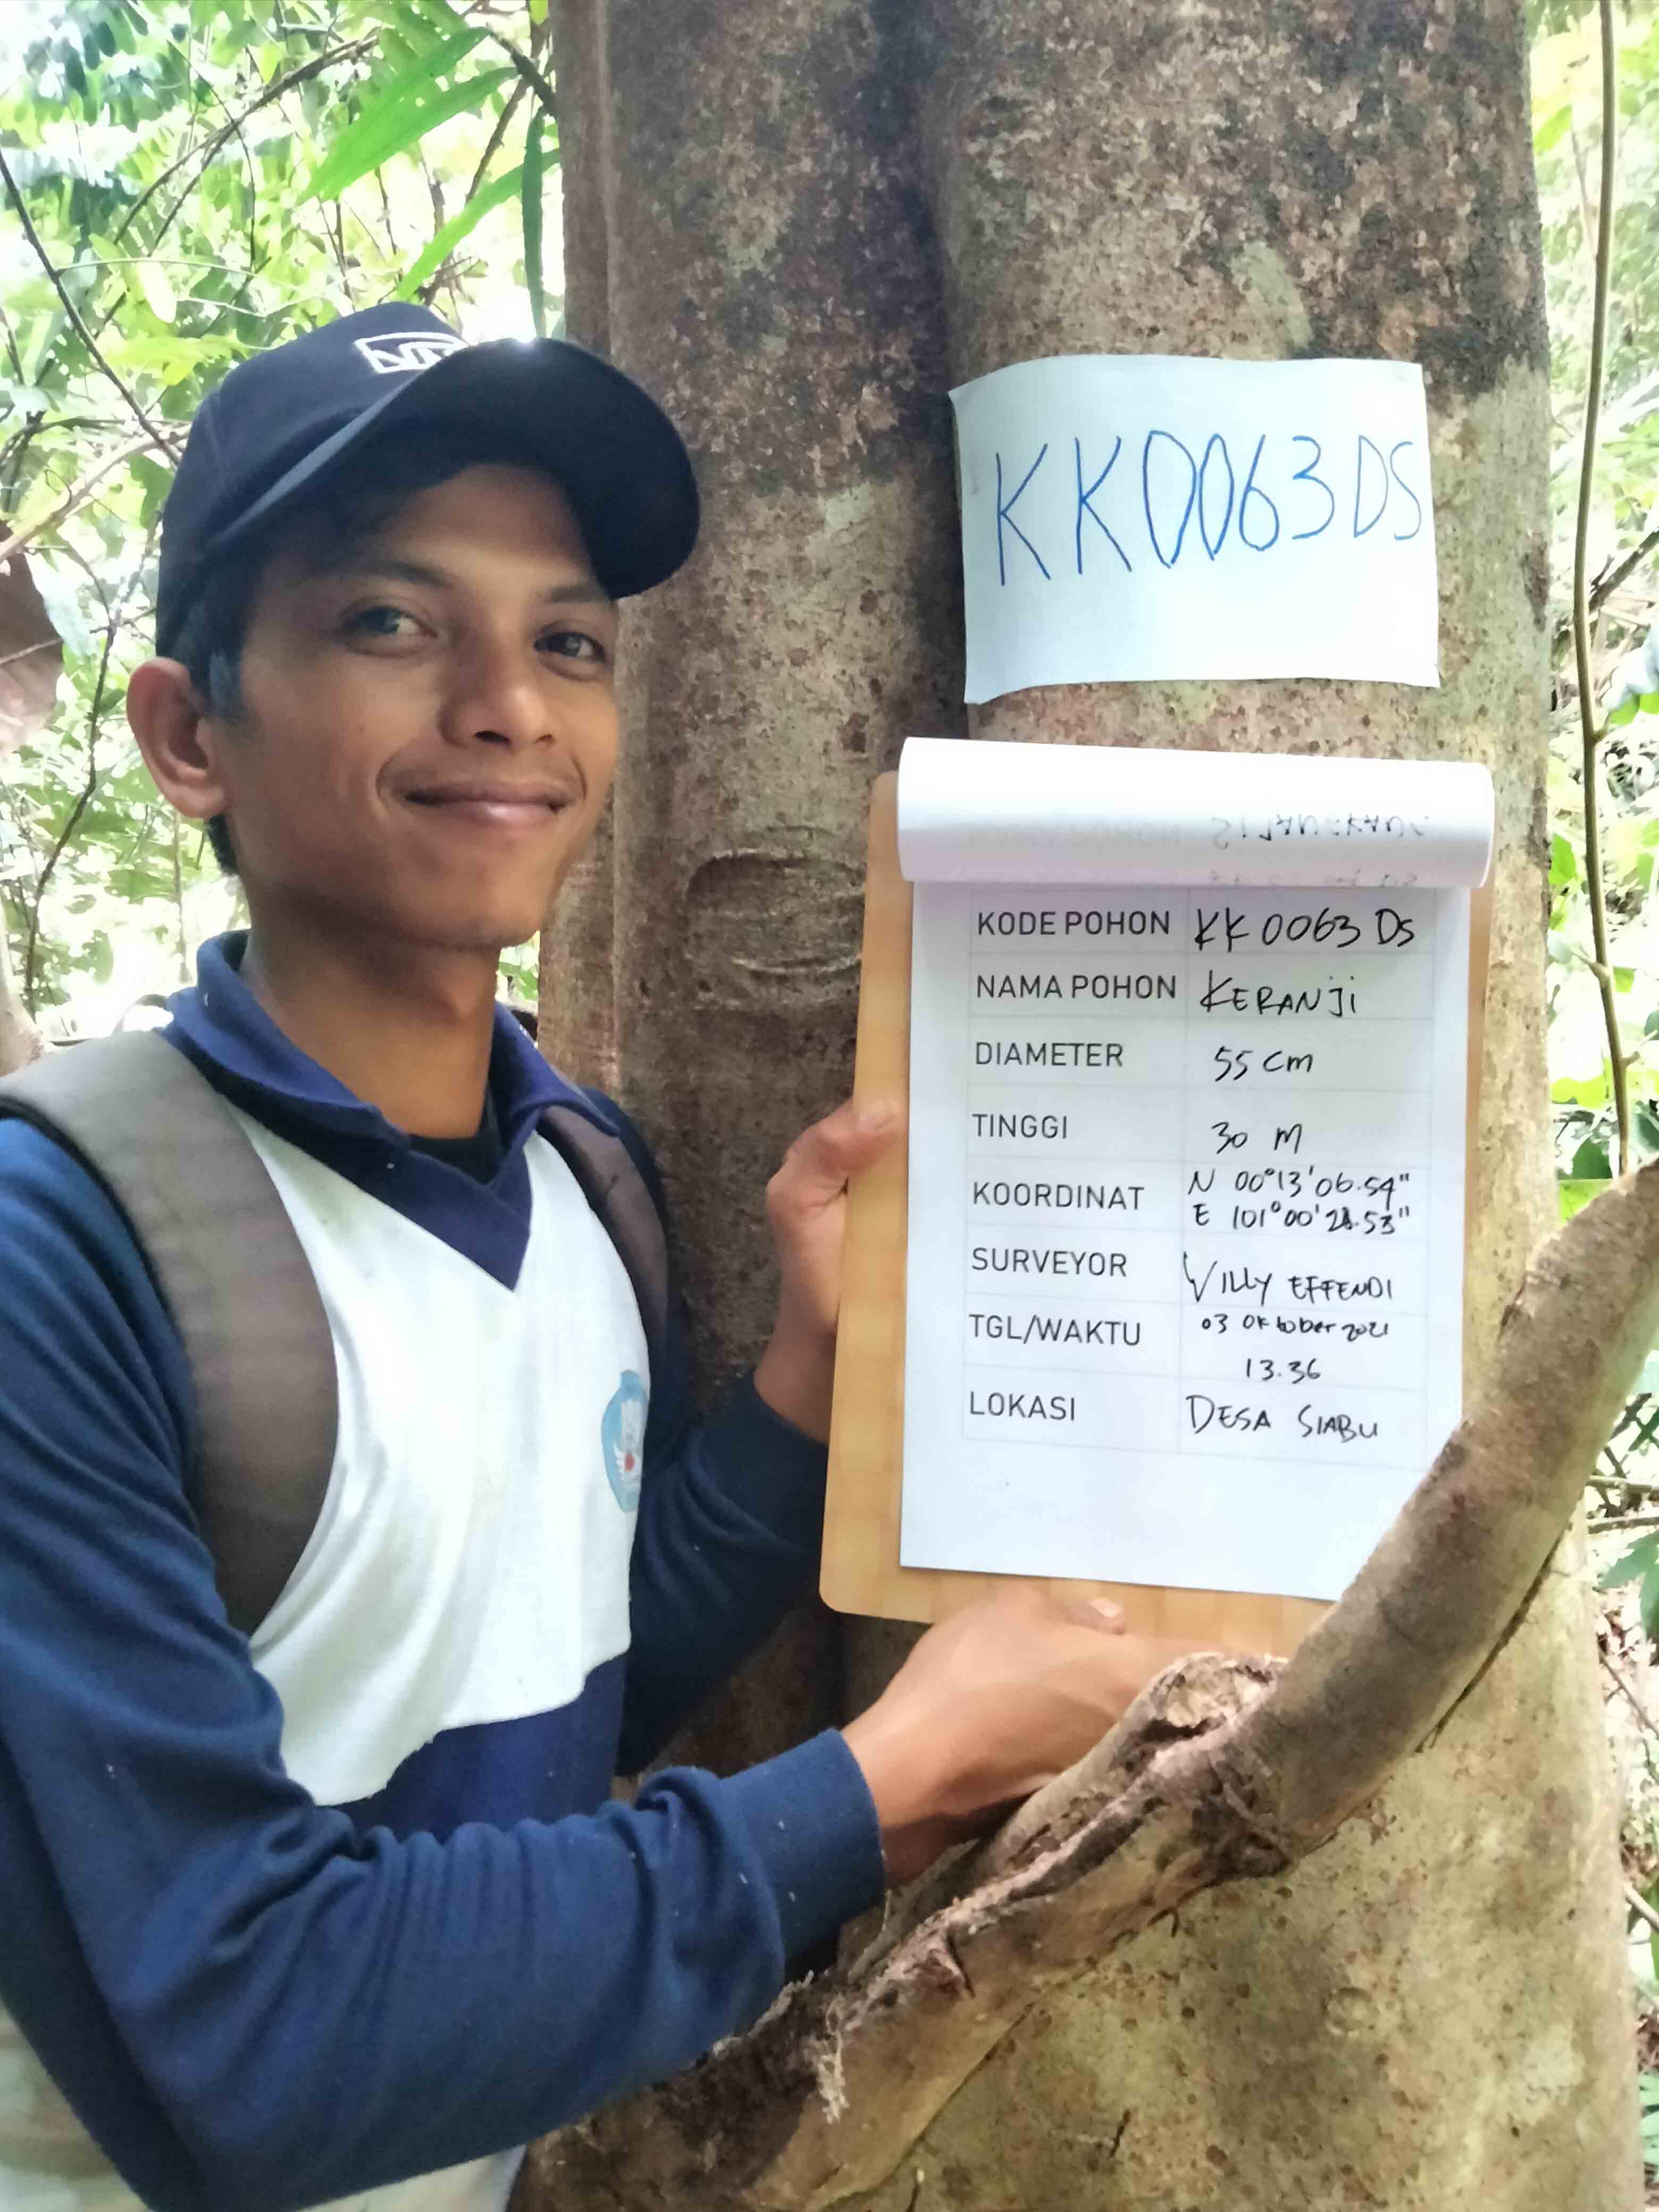 KK0063DS
KODE POHON KK 0063 DS
NAMA POHON KERANJI
DIAMETER 55 cm
TINGGI 30 M
KOORDINAT N 00°13'06.54"
E 101°00'28.53"
SURVEYOR WILLY EFFENDI
TGL/WAKTU 03 Oktober 2021
13.36
LOKASI DESA SIABU